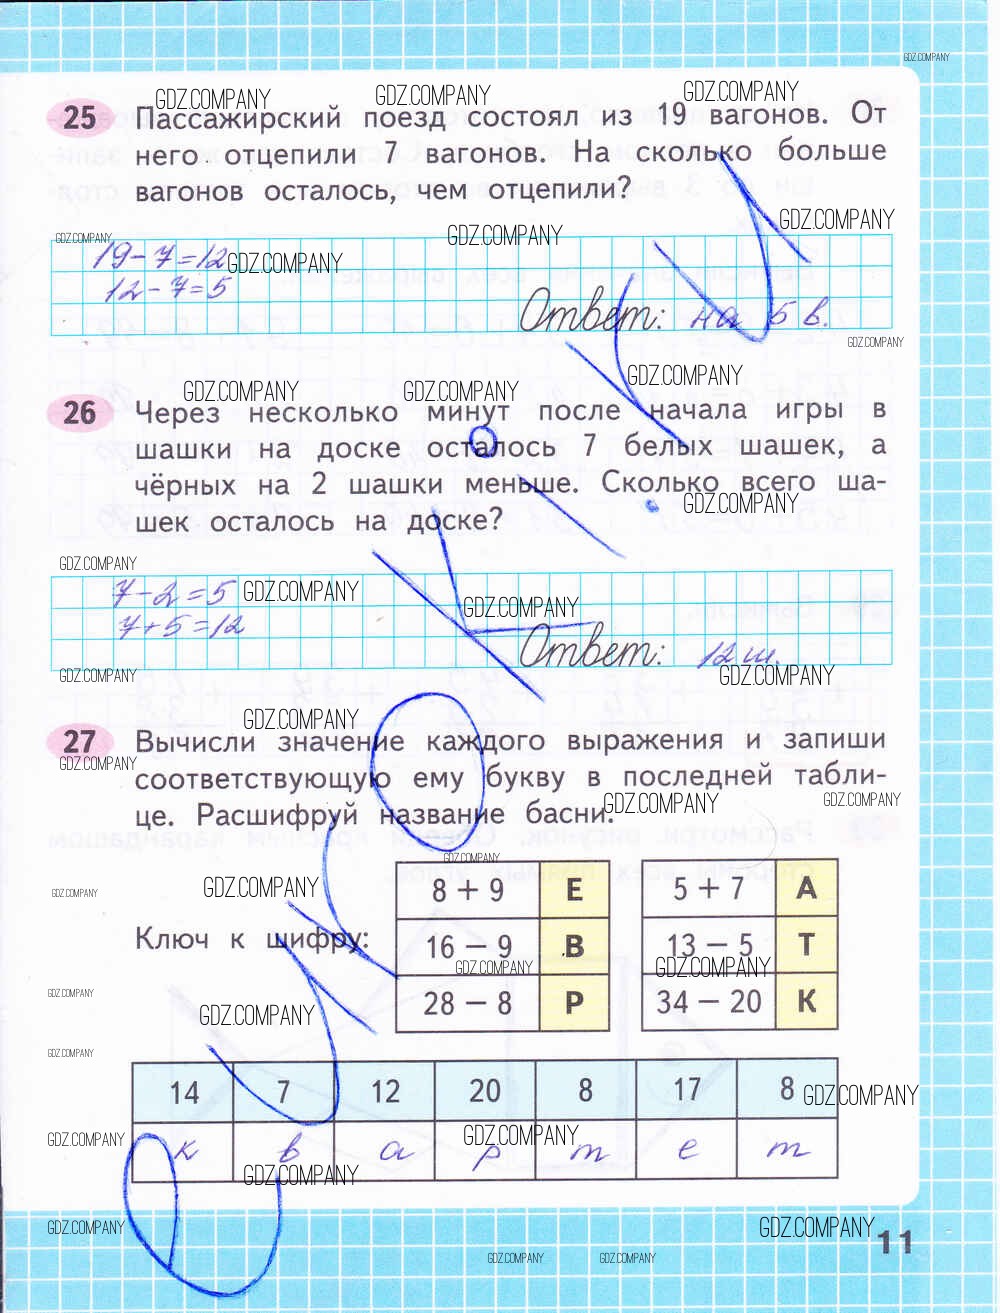 GDZ.COMPANY
GDZ.COMPANY GDZ.COMPANY GDZ.COMPANY
25 Пассажирский поезд состоял из 19 вагонов. От
него отцепили 7 вагонов. На сколько больше
вагонов осталось, чем отцепили?
GDZ.COMPANY GDZ.COMPANY GDZ.COMPANY
19-7=12 GDZ.COMPANY
12-7=5
Ответ: на 5 в.
GDZ.COMPANY
GDZ.COMPANY GDZ.COMPANY GDZ.COMPANY
26 Через несколько минут после начала игры в
шашки на доске осталось 7 белых шашек, а
чёрных на 2 шашки меньше. Сколько всего ша-
GDZ.COMPANY
шек осталось на доске?
GDZ.COMPANY
7-2=5 GDZ.COMPANY GDZ.COMPANY
7+5=12
Ответ: 12 ш.
GDZ.COMPANY GDZ.COMPANY
GDZ.COMPANY
27 Вычисли значение каждого выражения и запиши
GDZ.COMPANY
соответствующую ему букву в последней табли-
GDZ.COMPANY GDZ.COMPANY
це. Расшифруй название басни.
GDZ.COMPANY
GDZ.COMPANY GDZ.COMPANY
8 + 9 Е 5 + 7 А
Ключ к шифру: 16 − 9 В 13 − 5 Т
GDZ.COMPANY GDZ.COMPANY
GDZ.COMPANY
28 − 8 Р 34 − 20 К
GDZ.COMPANY
GDZ.COMPANY
14 7 12 20 8 17 8
GDZ.COMPANY
GDZ.COMPANY GDZ.COMPANY
к в а р т е т
GDZ.COMPANY
GDZ.COMPANY GDZ.COMPANY
11
GDZ.COMPANY GDZ.COMPANY